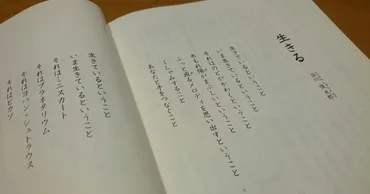 生きる
谷川 俊太郎
生きているということ
いま生きているということ
それはのどがかわくということ
木もれ陽がまぶしいということ
ふっと或るメロディを思い出すということ
くしゃみすること
あなたと手をつなぐこと
生きているということ
いま生きているということ
それはミニスカート
それはプラネタリウム
それはヨハン・シュトラウス
それはピカソ